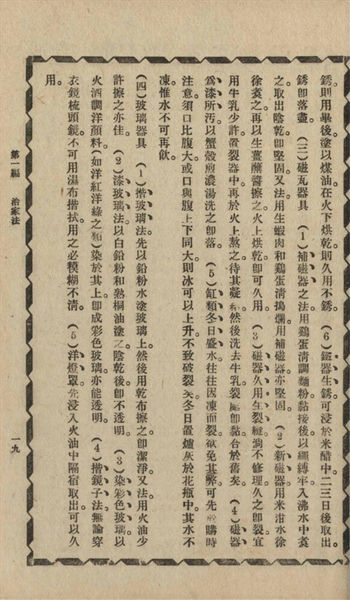 銹則用畢後塗以煤油在火下烘乾則久用不銹。(6)鐵器生銹可浸於米醋中二三日後取出
銹卽落盡。(三)磁瓦器具 (1)補磁器之法用鷄蛋清調麵粉黏接後以繩縛牢入沸水中煑
之取出陰乾卽堅固又法用生蝦肉和鷄蛋清搗爛用補磁器亦堅固。(2)新磁器用米泔水徐
徐煑之再以生薑蘸醬擦之火上烘乾卽可久用。(3)磁器久用生裂縫倘不修理久之卽裂宜
用牛乳少許置裂器中再於火上熬之待其凝和然後洗去牛乳裂處卽黏合於舊矣。(4)磁器
爲漆所汚以蟹殼煎濃湯洗之卽落。(5)缸類冬日盛水往往因凍而裂欲免其弊可先於購時
注意須口比腹大或口與腹上下同大則冰可以上升不致破裂矣冬日置爐灰於花瓶中其水不
凍惟水不可再飲。
(四)玻璃器具 (1)揩玻璃法先以鉛粉水塗玻璃上然後用乾布擦之卽潔淨又法用火油少
許擦之亦佳。(2)漆玻璃法以白鉛粉和熟桐油塗之陰乾後卽不透明。(3)染彩色玻璃以
火酒調洋顏料(如洋紅洋綠之類)染於其上卽成彩色玻璃亦能透明。(4)揩鏡子法無論穿
衣鏡梳頭鏡不可用濕布揩拭用之必模糊不清。(5)洋燈罩先浸入火油中隔宿取出可以久
用。
第一編 治家法
一九